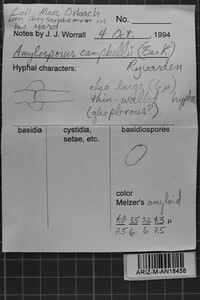 Coll. Marc Orbach
from Chrysanthemum in
his yard
No.
Notes by J. J. Worrall 4 Oct. , 1994
Amylosporus campbellii (Berk)
Ryvarden
Hyphal characters:
also large (6µ)
thin-walled hyphae
(gloeoplerous?)
basidia
cystidia,
setae, etc.
basidiospores
color
Melzer's amyloid
ARIZ-M-AN18458